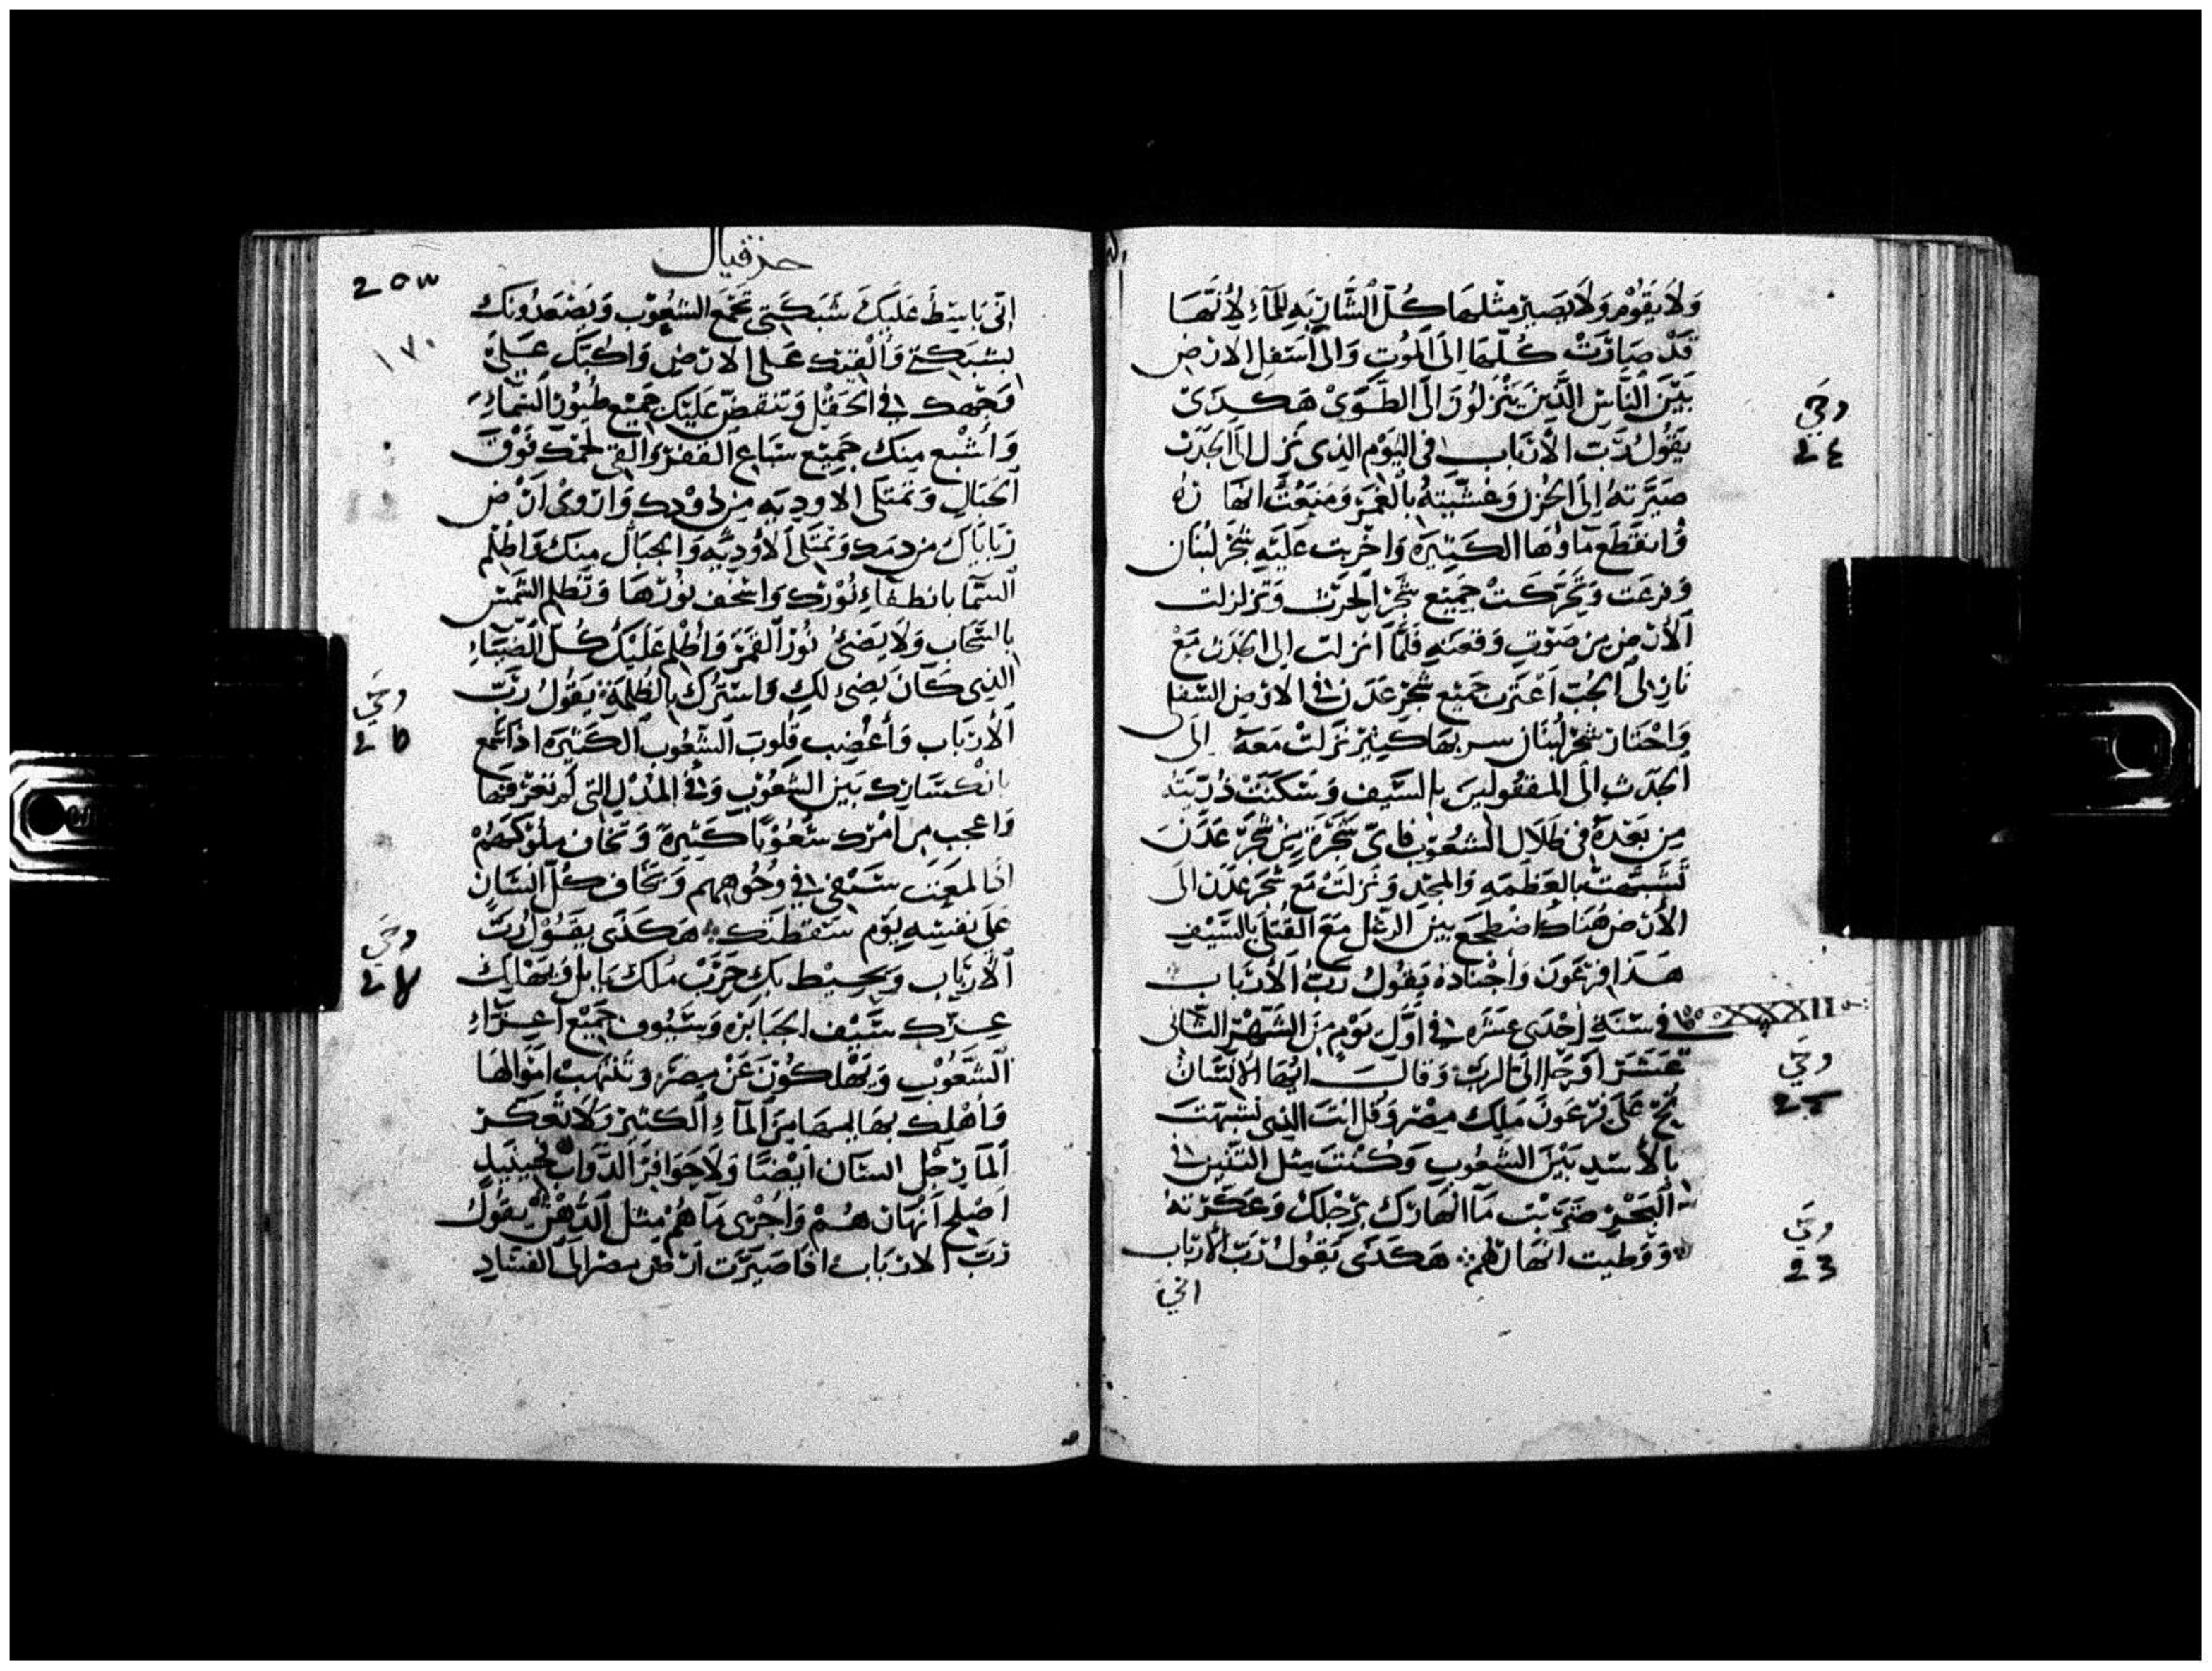 ولَا يَقُوم وَلَا يَصير مثلها كُل الشَّاربَه للمآءِ لأنَّهَا
قَدْ صَارَتْ كُلّهَا اِلَى المَوُتِ وَالى اَسَفل الارض
بَيْنَ النَّاسِ الَّذِينَ يَنْزلوُن الَى الطَّوَىْ هَكدَىْ
يَقُولُ رَّبّ الاربَاب في اليَوْم الذى نزل الى الجَدَث
صَيَّرَتهُ اِلىَ الحُزن وَغشّيَتهُ بالغَمر وَمَنَعْتُ انهَارهُ
وَانقَطَع مآوهَا الكَثيَره وَاخربت عَلَيَهِ شَجَر لبْنَان
وَفزعَت وَتَحَرَّكَتْ جَمِيْع شَجَر الحَرث وَتزلزلت
الأرض مِن صَوْتِ وَقعَتهِ فَلمَّا انزلت الى الجَدث مَعْ
نَازلى الجُبّ اعتَزت جَمْيع شَجَر عَدَن في الارض السّفلى
وَاخْتاَر شجَرْ لبْنَان سربهَا كبيَر نَزلتْ مَعَهُ الىَ
الجَدَث الى المقتوُلينَ بالسَّيف وَسَكَنَتْ ذُرّيَته
مِن بَعْدهُ في ظَلَال الشعُوْب فاىّ شَجَرَة مِنْ شَجَر عَدَنَ
تَشَبَّهتْ بالعَظَمَه وَالمجَدِ وَنَزلَتْ مَع شَجَر عَدَن الىَ
الأرض هُنَاك اضطجع بين الرمل مَعَ القُتَلى بالسَّيْفِ
هَذَا فِرْعَون وَأجْنَادهُ يَقوُلُ رَبُّ الأرْبَاب
في سَنَةِ أحْدَى عَشَرَه في اوّل يَوْم مِنَ الشَهْر الثانى
عَشَرَ اوحَا الىَّ الرَّبّ وَقَالَ ايّهَا الإنْسَانُ
نُحْ عَلىَ فِرْعَونَ مَلِك مِصْر وَقل انتَ الذى تشبّهتَ
بالأسَدِ بَيْنَ الشعُوب وَكُنْتَ مِثل التّنِين في
البَحْر ضَرَبت مَآ انهَارك برجْلكَ وَعَكَرته
وَوَطيت انهارهم هَكَدَى يَقُولُ رَبّ الأرْبَاب
اني
وحي
٢٤
وحي
٢٢
وحي
٢3
حزقيال
٢٥٣
١٧٠
اِنّى بَاسِطُ عَلَيكَ شَبَكَتى بجَمْع الشعُوْب وَيصْعَدُوْنكَ
بشَبَكتى وَالقيك عَلى الارض وَاكبّك عَلىَ
وَجْهك في الحَقْل وَتنقضّ عَليَك جَميْع طيُوْر السَّمآءِ
وَأشْبع مِنك جَمِيْع سبَاع القفر وَالقى لحمَك فَوْقَ
الجبَالِ وَتمَتَلى الاودِيَه مِن دوْدِك وَاروى اَرْض
زبَاباك مِن دَمَك وَتمَتَلى الأوْدِيَه وَالجبَال مِنك وَاظلم
السّما بانطفآءِ نُوْرك وَاسْخف نوُرهَا وَتظلم الشمس
بالسَّحَاب وَلَا يَضىُ نُوْر القمَر وَاظلم عَلَيْكَ كُل الضيَآءِ
الذى كَانَ يَضىُ لَكِ وَاستركَ بالظلمَة يَقولُ رَّبّ
الأربَاب وَأغضِب قلوبَ الشعُوب الكثيَره اذَا سمع
بانكسَارك بَيَن الشّعُوْب وَفي المُدُنِ التى لَم تعْرفهَا
وَاعجب مِن امْرك شعُوْبًا كَثيرَة وَتَخَاف ملوكهُمْ
اذَا لمعَت سَيْفى في وجُوههم وَيَخَاف كُلّ انسَان
عَلى نفسِه يَوْم سَقطتك هَكَذَى يَقُوْلُ رَبّ
الأربَاب وَيحِيْط بك حَرْبْ مَلك بَابل وَيَهلك
عِزّك سَيْف الجبَابرَه وَسيُوف جَميْع اعِزآءِ
الشعُوْب وَيَهْلكوُنَ عَنْ مِصرَ وَتُنْهَبْ امْوَالهَا
وَأهْلك بهَايمهَا مِنَ المآءِ الكثيْر وَلاَ تعَكر
المآ رجْل انسَان ايْضًا وَلَا حَوَافر الدَّوَابّ حِينَيذٍ
اَصْلح أنهَان هُمْ وَاجْرى مآهُمْ مِثل الدُّهْن يقولُ
رَبّ الاربَاب اذَا صَيّرَت اَرْض مِصر الى الفسَادِ
وحي
٢٥
وحي
٢٤